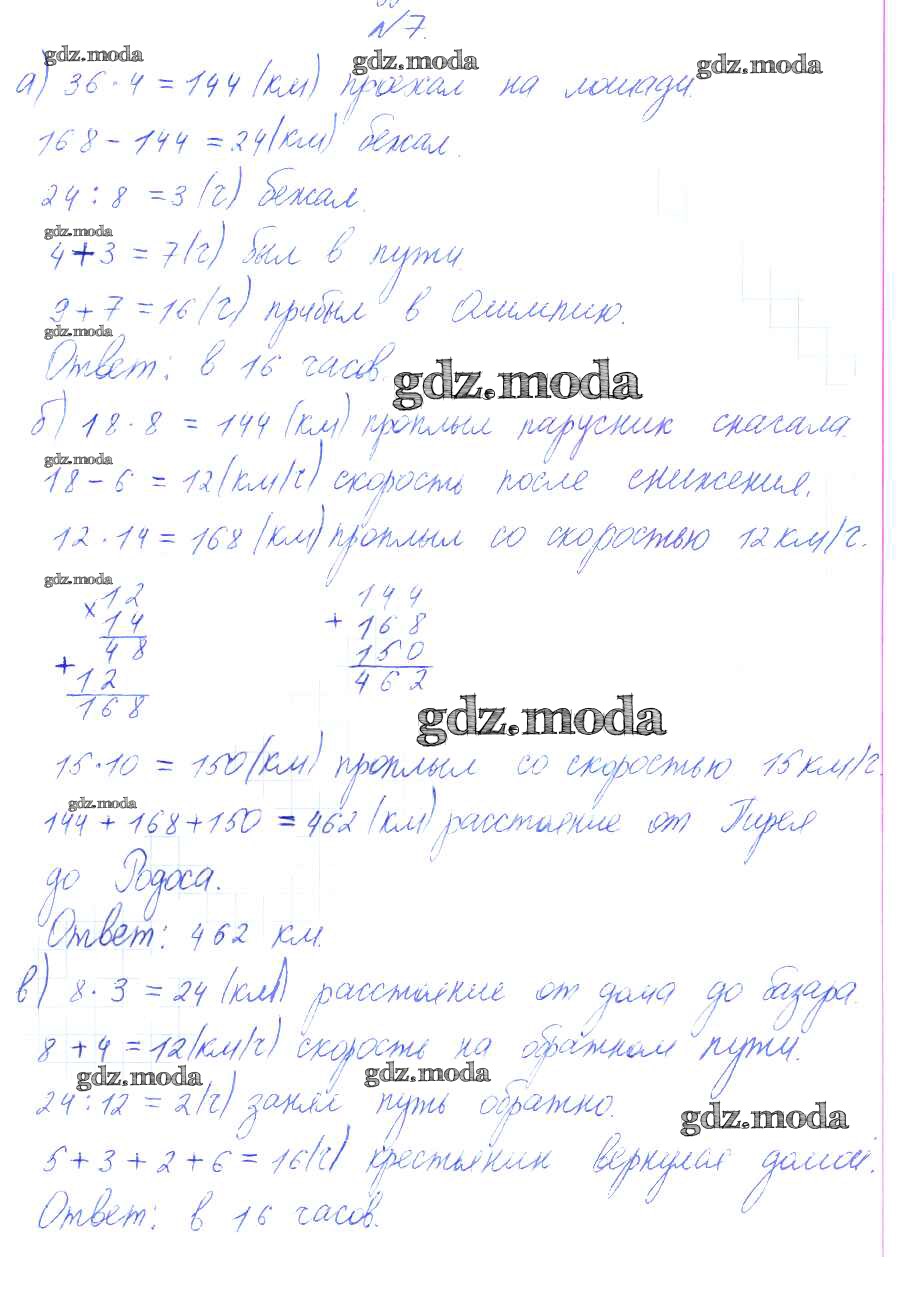 №7.
gdz.moda gdz.moda gdz.moda
а) 36·4 = 144 (км) проехал на лошади.
168 - 144 = 24 (км) бежал.
24 : 8 = 3 (ч) бежал.
gdz.moda
4 + 3 = 7 (ч) был в пути.
9 + 7 = 16 (ч) прибыл в Олимпию.
gdz.moda
Ответ: в 16 часов.
gdz.moda
б) 18·8 = 144 (км) проплыл парусник сначала.
gdz.moda
18 - 6 = 12 (км/ч) скорость после снижения.
12·14 = 168 (км) проплыл со скоростью 12 км/ч.
gdz.moda
× 12 144
14 + 168
48 150
+ 12 462
168
gdz.moda
15·10 = 150 (км) проплыл со скоростью 15 км/ч.
gdz.moda
144 + 168 + 150 = 462 (км) расстояние от Пирея
до Родоса.
Ответ: 462 км.
в) 8·3 = 24 (км) расстояние от дома до базара.
8 + 4 = 12 (км/ч) скорость на обратном пути.
gdz.moda gdz.moda
24 : 12 = 2 (ч) занял путь обратно.
gdz.moda
5 + 3 + 2 + 6 = 16 (ч) крестьянин вернулся домой.
Ответ: в 16 часов.